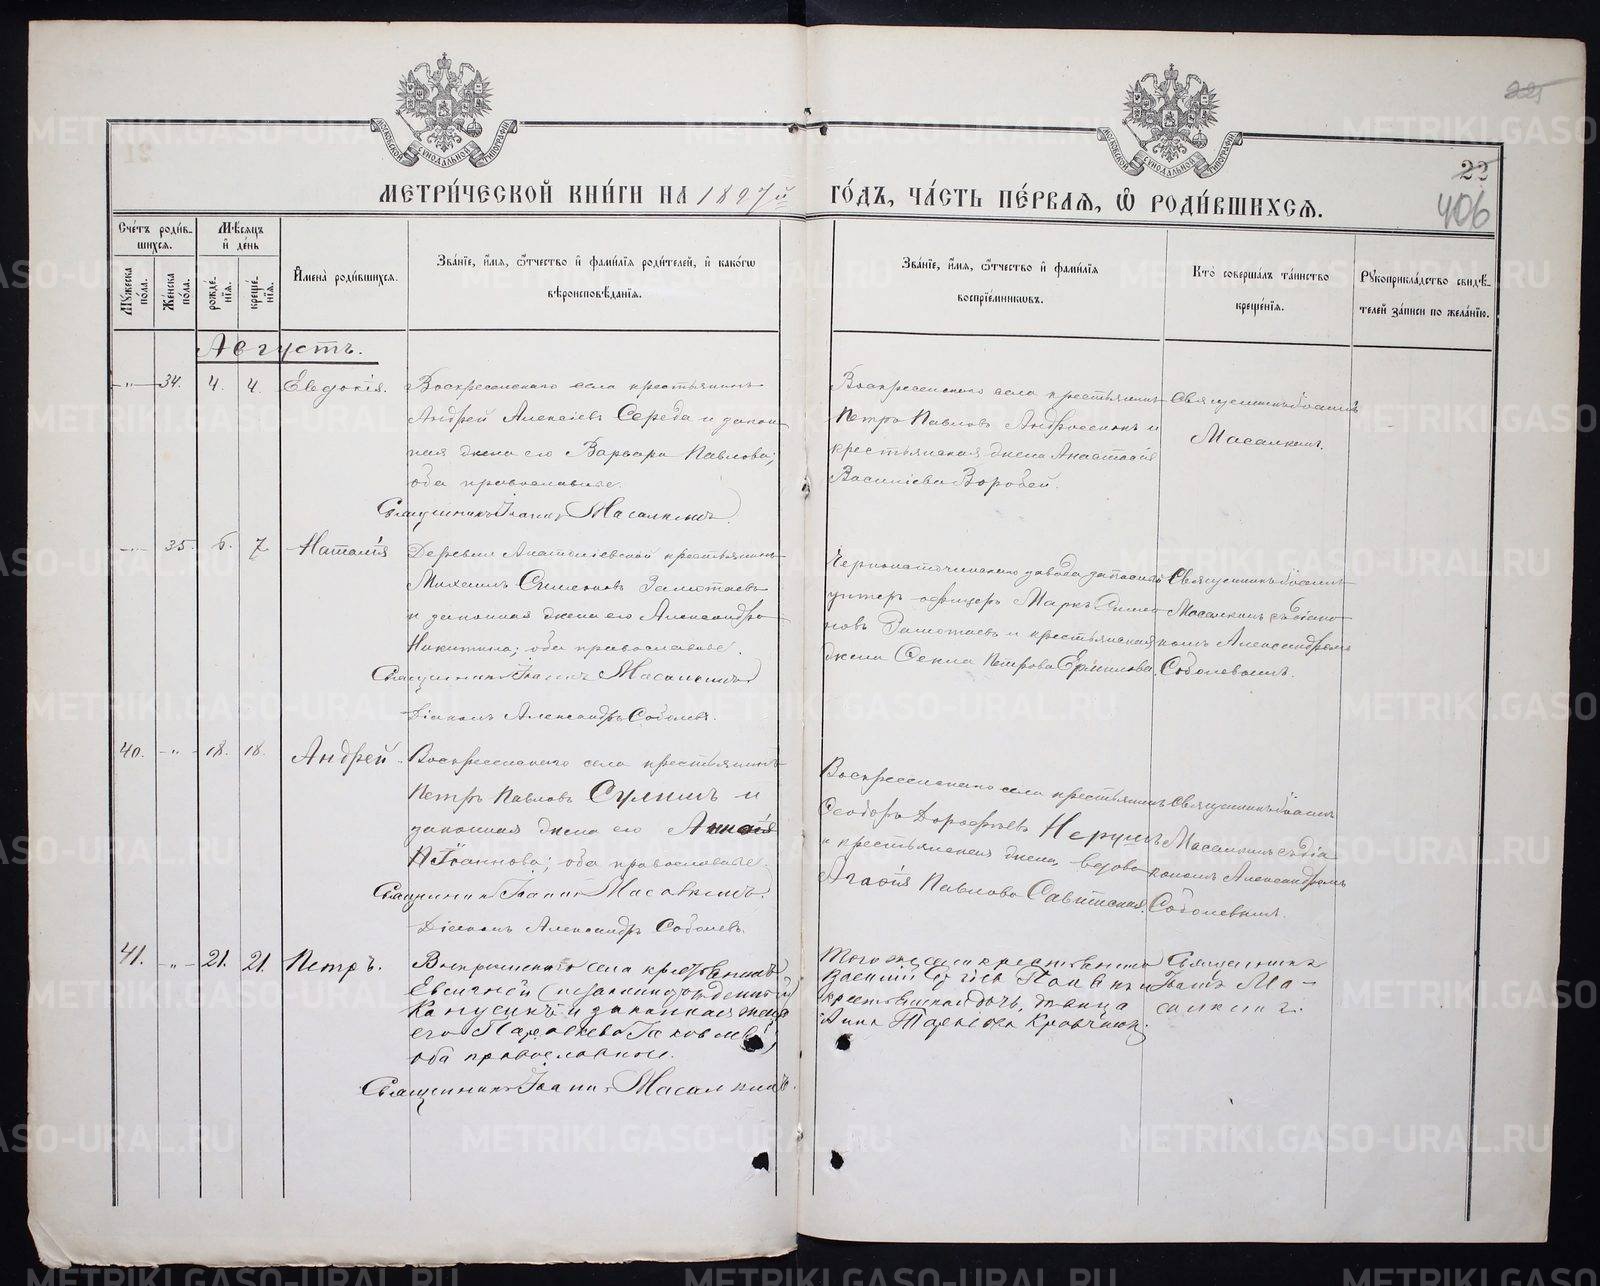 METRIKI.GASO-URAL.RU
МОСКОВСКОЙ СѴНОДАЛЬНОЙ ТИПОГРАФІИ
МОСКОВСКОЙ СѴНОДАЛЬНОЙ ТИПОГРАФІИ
23
406
МЕТРИ́ЧЕСКОЙ КНИ́ГИ НА 1897й ГО́ДЪ, ЧА́СТЬ ПЕ́РВАѦ, Ѽ РОДИ́ВШИХСѦ.
Сче́тъ роди́в-
шихсѧ.
Мꙋжеска по́ла.
Же́нска по́ла.
Мѣ́сѧцъ
и҆ де́нь
рожде́-
нїѧ.
креще́-
нїѧ.
И҆мена̀ роди́вшихсѧ.
Зва́нїе, и҆́мѧ, ѻ҆́тчество и҆ фами́лїѧ роди́телей, и҆ како́гѡ
вѣроисповѣ́данїѧ.
Зва́нїе, и҆́мѧ, ѻ҆́тчество и҆ фами́лїѧ
воспрїе́мникѡвъ.
Кто̀ соверша́лъ та́инство
креще́нїѧ.
Рꙋкоприкла́дство свидѣ́-
телей за́писи по жела́нїю.
Августъ.
-"- 34. 4. 4. Евдокія.
Воскресенскаго села крестьянинъ
Андрей Алексіевъ Середа и закон
ная жена его Варвара Павлова;
оба православные.
Священникъ Іоаннъ Масалкинъ
Воскресенскаго села крестьянинъ
Петръ Павловъ и
крестьянская жена Анастасія
Василіева Воробей.
Священникъ Іоаннъ
Масалкинъ.
35. 6. 7 Наталія
Деревни Анатоліевской крестьянинъ
Михаилъ Симеоновъ Замотаевъ
и законная жена его Александра
Никитина; оба православные.
Священникъ Іоаннъ Масалкинъ
Діаконъ Александръ Соболевъ.
Черноисточинскаго завода запасный
унтеръ-офицеръ Маркъ Симео
новъ Замотаевъ и крестьянская
жена Секла Петрова Ермилова.
Священникъ Іоаннъ
Масалкинъ съ діако
номъ Александромъ
Соболевымъ.
40. -"- 18. 18. Андрей
Воскресенскаго села крестьянинъ
Петръ Павловъ Сулимъ и
законная жена его
Іоаннова; оба православные.
Священникъ Іоаннъ Масалкинъ.
Діаконъ Александръ Соболевъ.
Воскресенскаго села крестьянинъ
Ѳеодоръ Дороѳеевъ
и крестьянская жена, вдова
Агафія Павлова Савитская.
Священникъ Іоаннъ
Масалкинъ съ діа
кономъ Александромъ
Соболевымъ.
41. -"- 21. 21. Петръ.
Воскресенскаго села крестьянинъ
Евсигней (незаконнорожденный)
и законная жена
его Параскева Іаковлева,
оба православные.
Священникъ Іоаннъ Масалкинъ.
Того же села крестьянинъ
Василій
крестьянская дочь, девица
Анна
Священникъ
Іоаннъ Ма-
салкинъ.